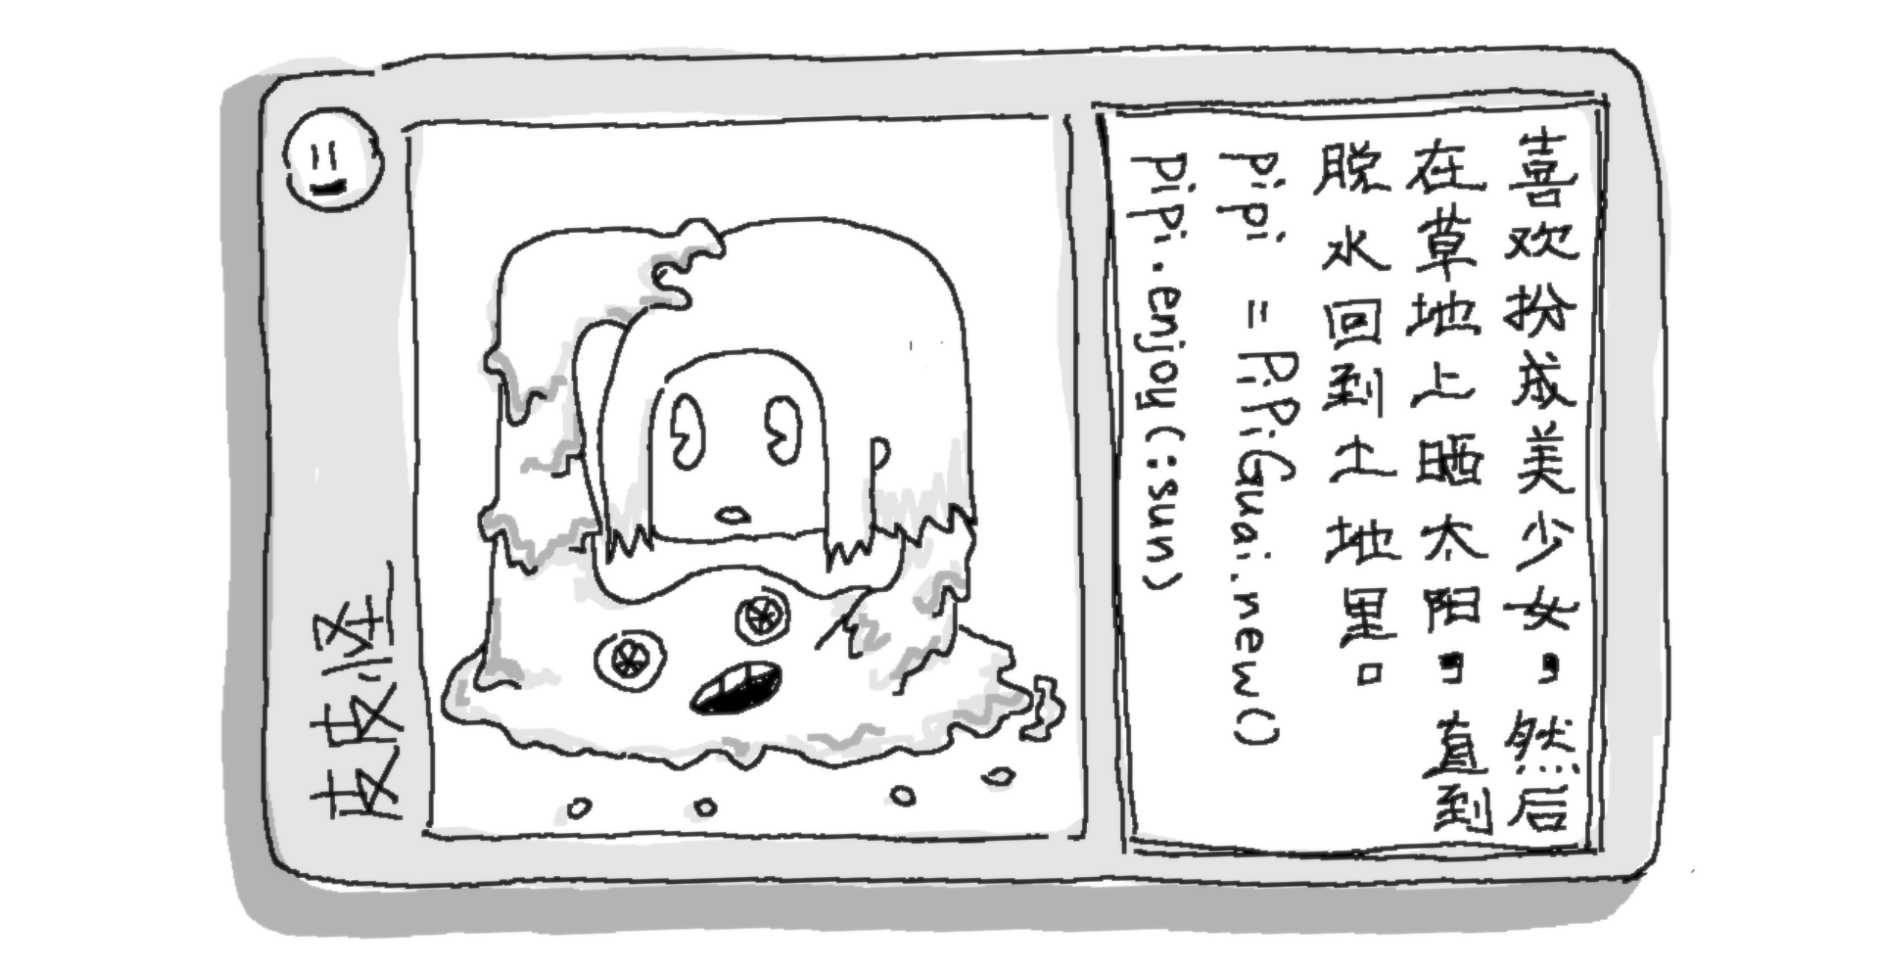 皮皮怪
喜欢扮成美少女，然后
在草地上晒太阳，直到
脱水回到土地里。
pipi = PiPiGuai.new()
pipi.enjoy(:sun)